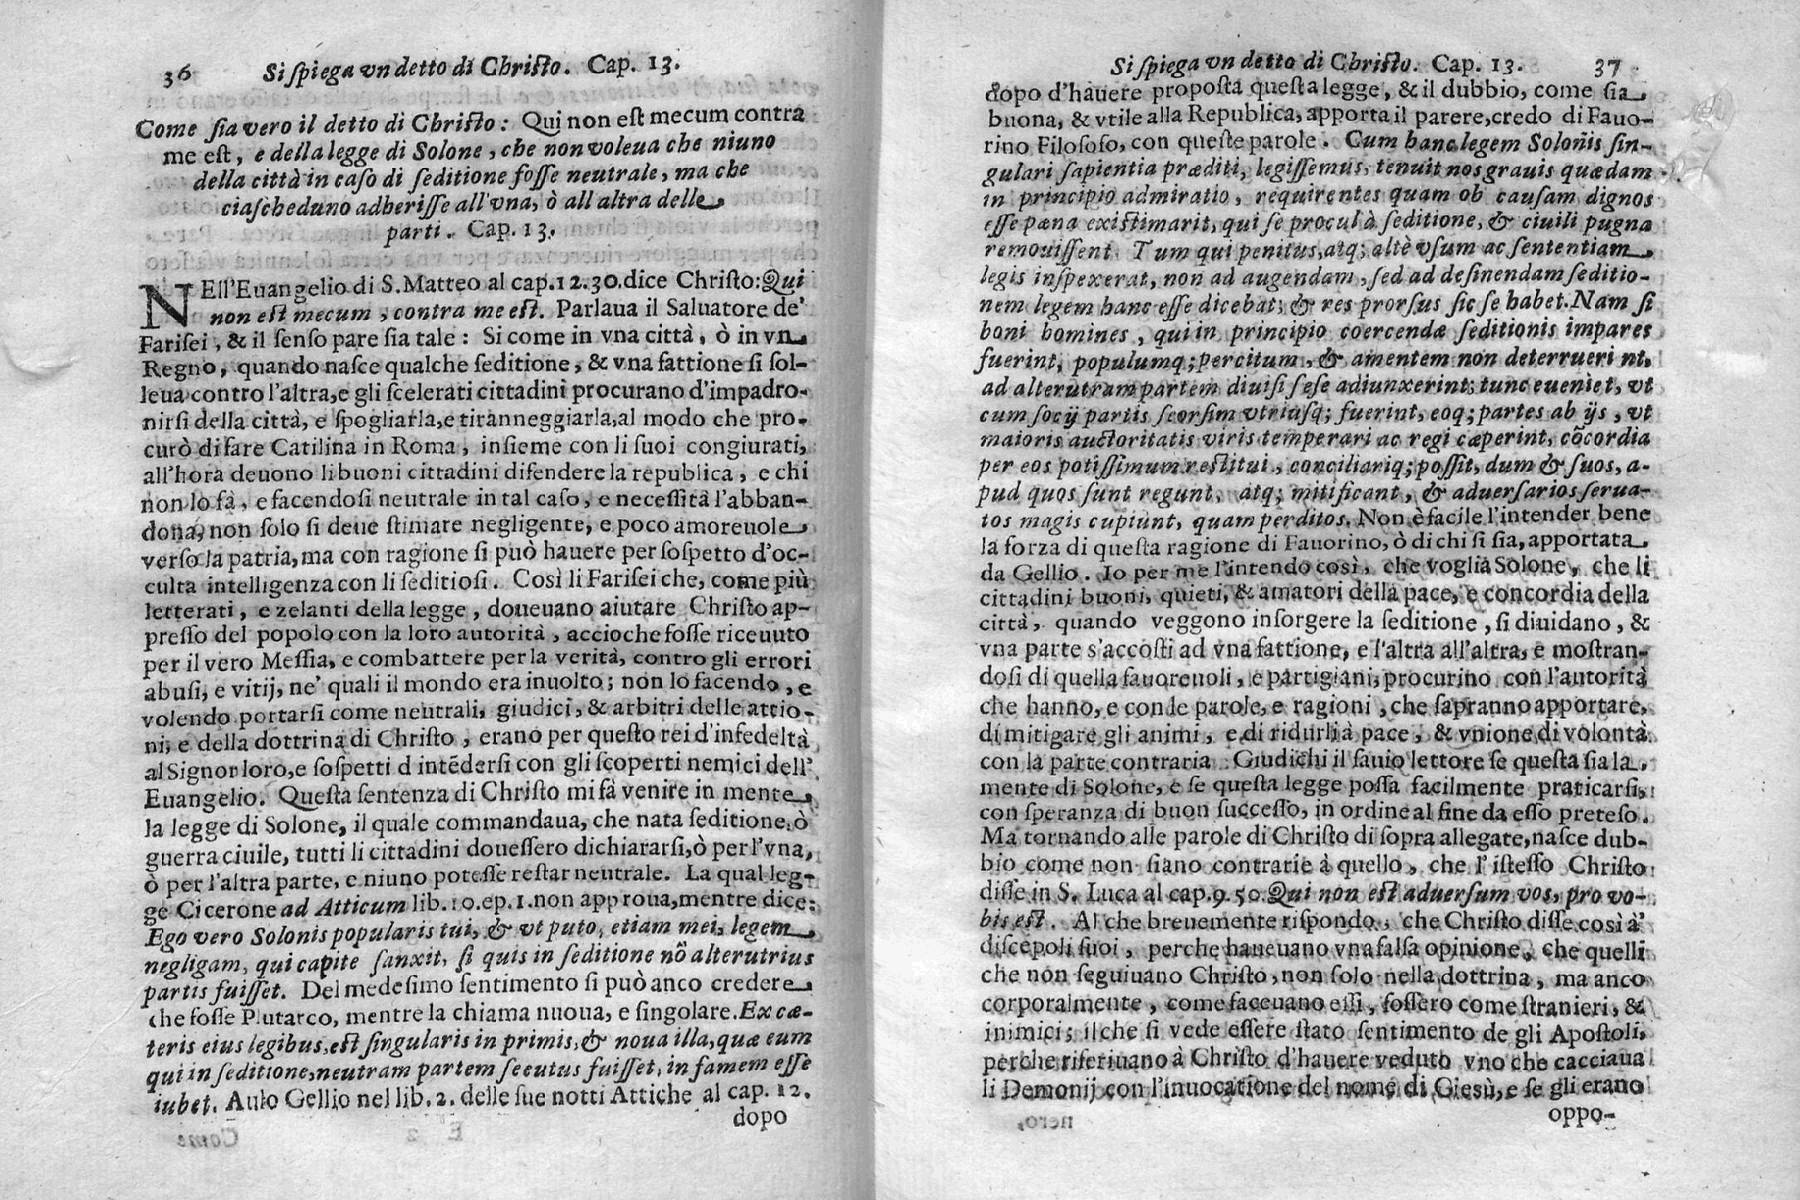 36 Si spiega vn detto di Christo. Cap. 13.
Come sia vero il detto di Christo: Qui non est mecum contra
me est, e della legge di Solone, che non voleua che niuno
della città in caso di seditione fosse neutrale, ma che
ciascheduno adherisse all'vna, ò all altra delle
parti. Cap. 13.
NEll'Euangelio di S. Matteo al cap. 12.30. dice Christo: Qui
non est mecum, contra me est. Parlaua il Saluatore de'
Farisei, & il senso pare sia tale: Si come in vna città, ò in vn
Regno, quando nasce qualche seditione, & vna fattione si sol-
leua contro l'altra, e gli scelerati cittadini procurano d'impadro-
nirsi della città, e spogliarla, e tiranneggiarla, al modo che pro-
curò di fare Catilina in Roma, insieme con li suoi congiurati,
all'hora deuono li buoni cittadini difendere la republica, e chi
non lo fà, e facendosi neutrale in tal caso, e necessità l'abban-
dona, non solo si deue stimare negligente, e poco amoreuole
verso la patria, ma con ragione si può hauere per sospetto d'oc-
culta intelligenza con li seditiosi. Così li Farisei che, come più
letterati, e zelanti della legge, doueuano aiutare Christo ap-
presso del popolo con la loro autorità, accioche fosse riceuuto
per il vero Messia, e combattere per la verità, contro gli errori
abusi, e vitij, ne' quali il mondo era inuolto; non lo facendo, e
volendo portarsi come neutrali, giudici, & arbitri delle attio-
ni, e della dottrina di Christo, erano per questo rei d'infedeltà
al Signor loro, e sospetti d intẽdersi con gli scoperti nemici dell'
Euangelio. Questa sentenza di Christo mi fà venire in mente
la legge di Solone, il quale commandaua, che nata seditione, ò
guerra ciuile, tutti li cittadini douessero dichiararsi, ò per l'vna,
ò per l'altra parte, e niuno potesse restar neutrale. La qual leg-
ge Cicerone ad Atticum lib. 10. ep. 1. non approua, mentre dice:
Ego vero Solonis popularis tui, & vt puto, etiam mei, legem
negligam, qui capite sanxit, si quis in seditione nõ alterutrius
partis fuisset. Del medesimo sentimento si può anco credere
che fosse Plutarco, mentre la chiama nuoua, e singolare. Ex cæ-
teris eius legibus, est singularis in primis, & noua illa, quæ eum
qui in seditione, neutram partem secutus fuisset, infamem esse
iubet. Aulo Gellio nel lib. 2. delle sue notti Attiche al cap. 12.
dopo
Si spiega vn detto di Christo. Cap. 13. 37
dopo d'hauere proposta questa legge, & il dubbio, come sia
buona, & vtile alla Republica, apporta il parere, credo di Fauo-
rino Filosofo, con queste parole. Cum hanc legem Solonis sin-
gulari sapientia præditi, legissemus, tenuit nos grauis quædam
in principio admiratio, requirentes quam ob causam dignos
esse pæna existimarit, qui se procul à seditione, & ciuili pugna
remouissent. Tum qui penitus, atq; altè vsum ac sententiam
legis inspexerat, non ad augendam, sed ad desinendam seditio-
nem legem hanc esse dicebat; & res prorsus sic se habet. Nam si
boni homines, qui in principio coercendæ seditionis impares
fuerint, populumq; percitum, & amentem non deterruerint,
ad alterutram partem diuisi sese adiunxerint; tunc eueniet, vt
cum socij partis seorsim vtriusq; fuerint, eoq; partes ab ijs, vt
maioris auctoritatis viris temperari ac regi cæperint, cõcordia
per eos potissimum restitui, conciliariq; possit, dum & suos, a-
pud quos sunt regunt, atq; mitificant, & aduersarios serua-
tos magis cupiunt, quam perditos. Non è facile l'intender bene
la forza di questa ragione di Fauorino, ò di chi si sia, apportata
da Gellio. Io per me l'intendo così, che voglia Solone, che li
cittadini buoni, quieti, & amatori della pace, e concordia della
città, quando veggono insorgere la seditione, si diuidano, &
vna parte s'accosti ad vna fattione, e l'altra all'altra, e mostran-
dosi di quella fauoreuoli, e partigiani, procurino con l'autorità
che hanno, e con le parole, e ragioni, che sapranno apportare,
di mitigare gli animi, e di ridurli à pace, & vnione di volontà
con la parte contraria. Giudichi il sauio lettore se questa sia la
mente di Solone, e se questa legge possa facilmente praticarsi,
con speranza di buon successo, in ordine al fine da esso preteso.
Ma tornando alle parole di Christo di sopra allegate, nasce dub-
bio come non siano contrarie à quello, che l'istesso Christo
disse in S. Luca al cap. 9. 50. Qui non est aduersum vos, pro vo-
bis est. Al che breuemente rispondo, che Christo disse così à'
discepoli suoi, perche haueuano vna falsa opinione, che quelli
che non seguiuano Christo, non solo nella dottrina, ma anco
corporalmente, come faceuano essi, fossero come stranieri, &
inimici; il che si vede essere stato sentimento de gli Apostoli,
perche riferiuano à Christo d'hauere veduto vno che cacciaua
li Demonij con l'inuocatione del nome di Giesù, e se gli erano
oppo-